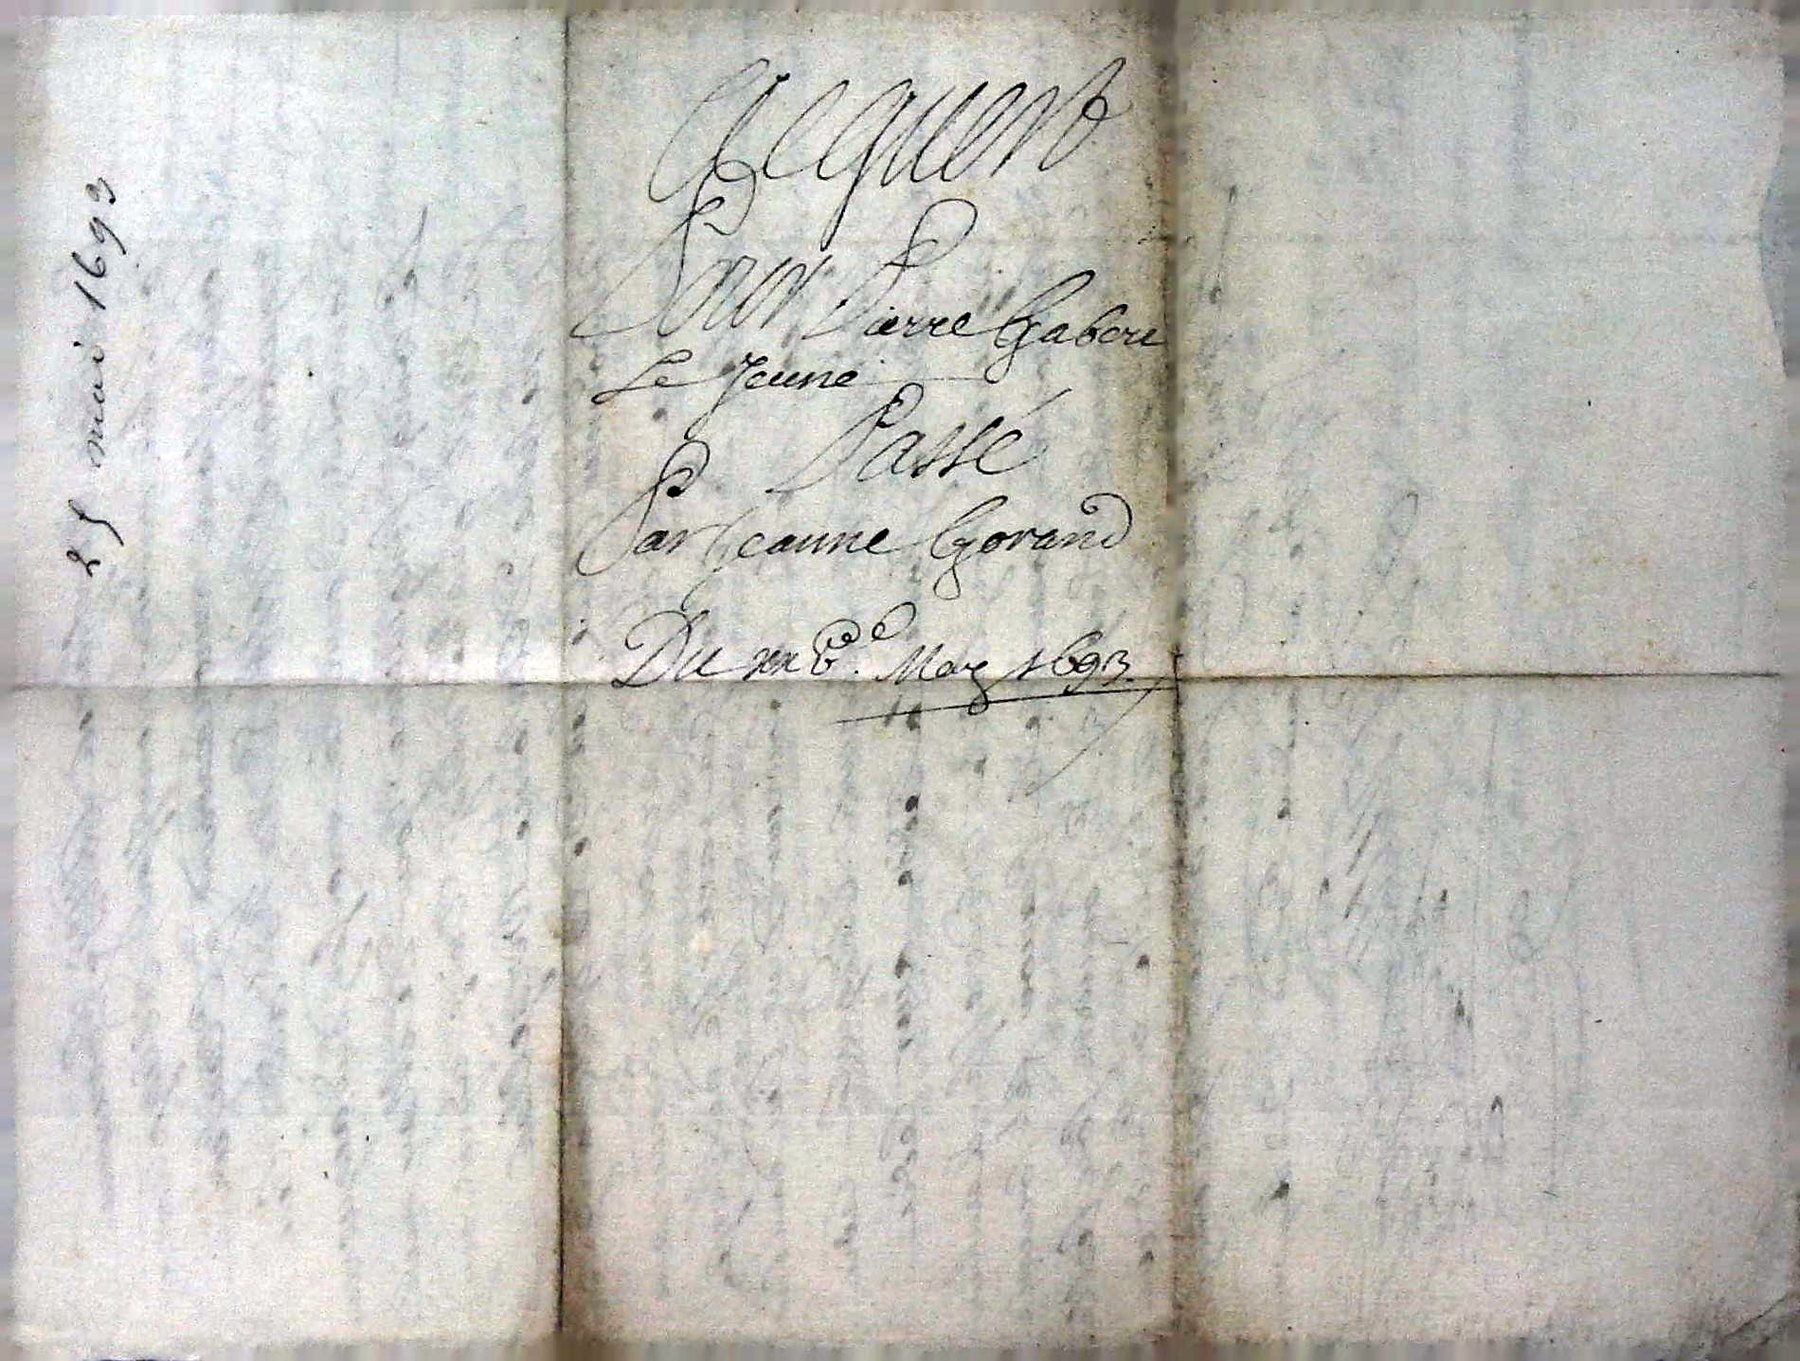 25 mai 1693
Acquest
Pour Pierre Gaborit
Le Jeune
Passé
Par Jeanne Gorand
Du xxve. May 1693.